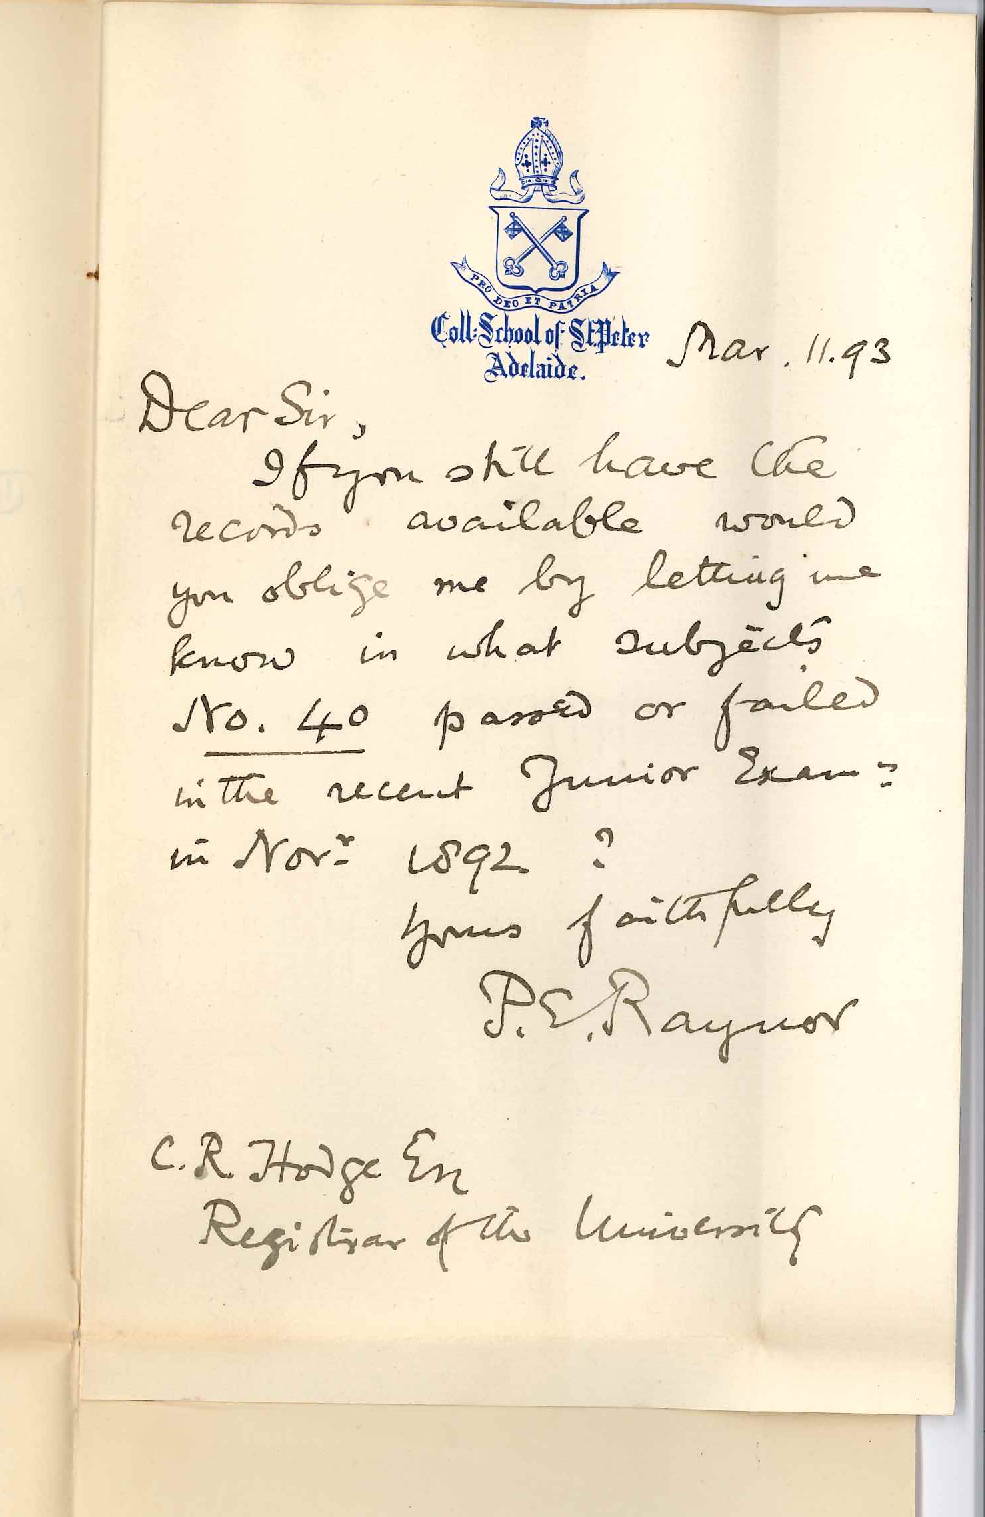 PRO DEO ET PATRIA
Coll: School of St. Peter
Adelaide.
Mar. 11. 93
Dear Sir,
If you still have the
records available would
you oblige me by letting me
know in what subjects
No. 40 passed or failed
in the recent Junior Exam=
in Novr 1892 ?
Yours faithfully
P. E. Raynor
C. R. Hodge Esq
Registrar of the University